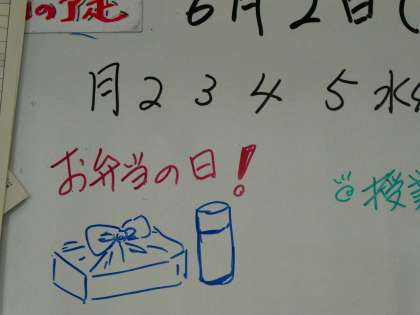 の予定
6月2日(
月2 3 4 5 水6
お弁当の日!
◎授業